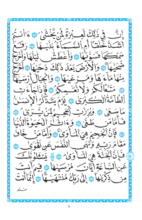 إِنَّ فِي ذَٰلِكَ لَعِبْرَةً لِّمَن يَخْشَىٰ ءَأَنتُمْ
أَشَدُّ خَلْقًا أَمِ ٱلسَّمَآءُ بَنَىٰهَا رَفَعَ
سَمْكَهَا فَسَوَّىٰهَا وَأَغْطَشَ لَيْلَهَا وَأَخْرَجَ
ضُحَىٰهَا وَٱلْأَرْضَ بَعْدَ ذَٰلِكَ دَحَىٰهَآ أَخْرَجَ
مِنْهَا مَآءَهَا وَمَرْعَىٰهَا وَٱلْجِبَالَ أَرْسَىٰهَا
مَتَٰعًا لَّكُمْ وَلِأَنْعَٰمِكُمْ فَإِذَا جَآءَتِ
ٱلطَّآمَّةُ ٱلْكُبْرَىٰ يَوْمَ يَتَذَكَّرُ ٱلْإِنسَٰنُ
مَا سَعَىٰ وَبُرِّزَتِ ٱلْجَحِيمُ لِمَن يَرَىٰ
فَأَمَّا مَن طَغَىٰ وَءَاثَرَ ٱلْحَيَوٰةَ ٱلدُّنْيَا
فَإِنَّ ٱلْجَحِيمَ هِيَ ٱلْمَأْوَىٰ وَأَمَّا مَنْ خَافَ
مَقَامَ رَبِّهِۦ وَنَهَى ٱلنَّفْسَ عَنِ ٱلْهَوَىٰ
فَإِنَّ ٱلْجَنَّةَ هِيَ ٱلْمَأْوَىٰ يَسْـَٔلُونَكَ
عَنِ ٱلسَّاعَةِ أَيَّانَ مُرْسَىٰهَا فِيمَ أَنتَ
مِن ذِكْرَىٰهَآ إِلَىٰ رَبِّكَ مُنتَهَىٰهَآ إِنَّمَآ أَنتَ